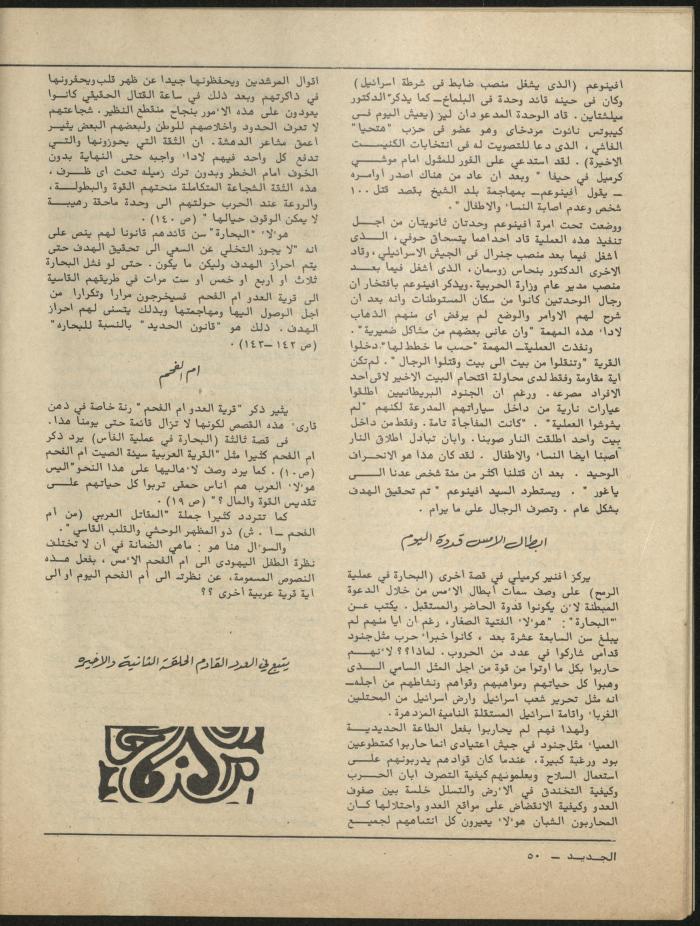 افينوعم (الذى يشغل منصب ضابط فى شرطة اسرائيل)
وكان فى حينه قائد وحدة فى البلماخ_ كما يذكر"الدكتور
ميلشتاين. قاد الوحدة المدعو دان ليز (يعيش اليوم فى
كيبوتس نائوت مردخاى وهو عضو فى حزب "هتحيا"
الفاشي، الذى دعا للتصويت له فى انتخابات الكنيست
الاخيرة) . لقد استدعي على الفور للمثول امام موشي
كرميل في حيفا " وبعد ان عاد من هناك اصدر اوامره
_ يقول أفينوعم_ بمهاجمة بلد الشيخ بقصد قتل ١٠٠
شخص وعدم اصابة النسا' والاطفال".
ووضعت تحت امرة أفينوعم وحدتان ثانويتان من اجل
تنفيذ هذه العملية قاد احداهما يتسحاق حوفي، الذى
اشغل فيما بعد منصب جنرال فى الجيش الاسرائيلي، وقاد
الاخرى الدكتور بنحاس زوسمان، الذى أشغل فيما بعد
منصب مدير عام وزارة الحربية .ويذكر افينوعم بافتخار ان
رجال الوحدتين كانوا من سكان المستوطنات وانه بعد ان
شرح لهم الاوامر والوضع لم يرفض اى منهم الذهاب
لادا' هذه المهمة "وان عانى بعضهم من مشاكل ضميرية".
ونفذت العملية_ المهمة "حسب ما خطط لها". دخلوا
القرية "وتنقلوا من بيت الى بيت وقتلوا الرجال". لم تكن
اية مقاومة وفقط لدى محاولة اقتحام البيت الاخير لاقى احد
الافراد مصرعه. ورغم ان الجنود البريطانيين اطلقوا
عيارات نارية من داخل سياراتهم المدرعة لكنهم "لم
يشوشوا العملية" . "كانت المفاجأة تامة. وفقط من داخل
بيت واحد اطلقت النار صوبنا. وابان تبادل اطلاق النار
أصبنا ايضا النسا' والاطفال . لقد كان هذا هو الانحراف
الوحيد . بعد ان قتلنا اكثر من مئة شخص عدنا الى
ياغور" . ويستطرد السيد افينوعم "تم تحقيق الهدف
بشكل عام . وتصرف الرجال على ما يرام .
ابطال الامس قدوة اليوم
يركز أفنير كرميلي فى قصة أخرى (البحارة في عملية
الرمح) على وصف سمات أبطال الامس من خلال الدعوة
المبطنة لان يكونوا قدوة الحاضر والمستقبل. يكتب عن
"البحارة": "هولا' الفتية الصغار، رغم ان ايا منهم لم
يبلغ سن السابعة عشرة بعد ، كانوا خبرا' حرب مثل جنود
قدامى شاركوا في عدد من الحروب. لماذا؟؟ لانهم
حاربوا بكل ما أوتوا من قوة من اجل المثل السامي الذى
وهبوا كل حياتهم ومواهبهم وقواهم ونشاطهم من اجله_
انه مثل تحرير شعب اسرائيل وارض اسرائيل من المحتلين
الغربا' واقامة اسرائيل المستقلة النامية المزدهرة.
ولهذا فهم لم يحاربوا بفعل الطاعة الحديدية
العميا' مثل جنود في جيش اعتيادى انما حاربوا كمتطوعين
بود ورغبة كبيرة، عندما كان قوادهم يدربونهم على
استعمال السلاح ويعلمونهم كيفية التصرف ابان الحرب
وكيفية التخندق في الارض والتسلل خلسة بين صفوف
العدو وكيفية الانقضاض على مواقع العدو واحتلالها كان
المحاربون الشبان هولا' يعيرون كل انتباههم لجميع
اقوال المرشدين ويحفظونها جيدا عن ظهر قلب ويحفرونها
في ذاكرتهم وبعد ذلك في ساعة القتال الحقيقي كانوا
يعودون على هذه الامور بنجاح منقطع النظير. شجاعتهم
لا تعرف الحدود واخلاصهم للوطن ولبعضهم البعض يثير
اعمق مشاعر الدهشة. ان الثقة التي يحوزونها والتي
تدفع كل واحد فيهم لادا' واجبه حتى النهاية بدون
الخوف امام الخطر وبدون ترك زميله تحت اى ظرف،
هذه الثقة الشجاعة المتكاملة منحتهم القوة والبطولة،
والروعة عند الحرب حولتهم الى وحدة ماحقة رهيبة
لا يمكن الوقوف حيالها" (ص ١٤٠) .
هولا' "البحارة" سن قائدهم قانونا لهم ينص على
انه "لا يجوز التخلي عن السعي الى تحقيق الهدف حتى
يتم احراز الهدف وليكن ما يكون. حتى لو فشل البحارة
ثلاث او اربع او خمس او ست مرات في طريقهم القاسية
الى قرية العدو ام الفحم فسيخرجون مرارا وتكرارا من
اجل الوصول اليها ومهاجمتها وبذلك يتسنى لهم احراز
الهدف. ذلك هو "قانون الحديد" بالنسبة للبحاره"
(ص ١٤٢ _١٤٣) .
ام الفحم
يثير ذكر "قرية العدو ام الفحم" رنة خاصة في ذهن
قارى' هذه القصص لكونها لا تزال قائمة حتى يومنا هذا.
في قصة ثالثة (البحارة في عملية الفأس) يرد ذكر
ام الفحم كثيرا مثل "القرية العربية سيئة الصيت ام الفحم
(ص١٠) . كما يرد وصف لاهاليها على هذا النحو"اليس
هولا' العرب هم اناس حمقى تربوا كل حياتهم على
تقديس القوة والمال؟" (ص ١٩) .
كما تتردد كثيرا جملة "المقاتل العربي (من ام
الفحم _ أ . ش) ذو المظهر الوحشي والقلب القاسي".
والسوال هنا هو : ماهي الضمانة في ان لا تختلف
نظرة الطفل اليهودى الى ام الفحم الامس، بفعل هذه
النصوص المسمومة، عن نظرته الى أم الفحم اليوم او الى
اية قرية عربية أخرى ؟؟
يتبع في العدد القادم الحلقة الثانية والاخيرة
الجديد _ ٥٠